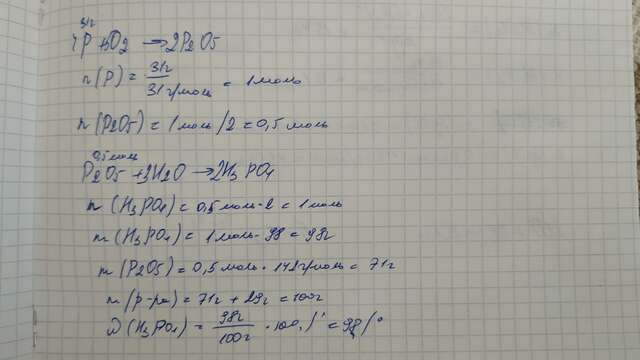 31г
4P + 5O2 → 2P2O5
n(P) = 31г / 31г/моль = 1моль
n(P2O5) = 1моль/2 = 0,5 моль
0,5 моль
P2O5 + 3H2O → 2H3PO4
n(H3PO4) = 0,5 моль·2 = 1моль
m(H3PO4) = 1моль·98 = 98г
m(P2O5) = 0,5 моль·142г/моль = 71г
m(р-ра) = 71г + 29г = 100г
W(H3PO4) = 98г / 100г · 100% = 98%